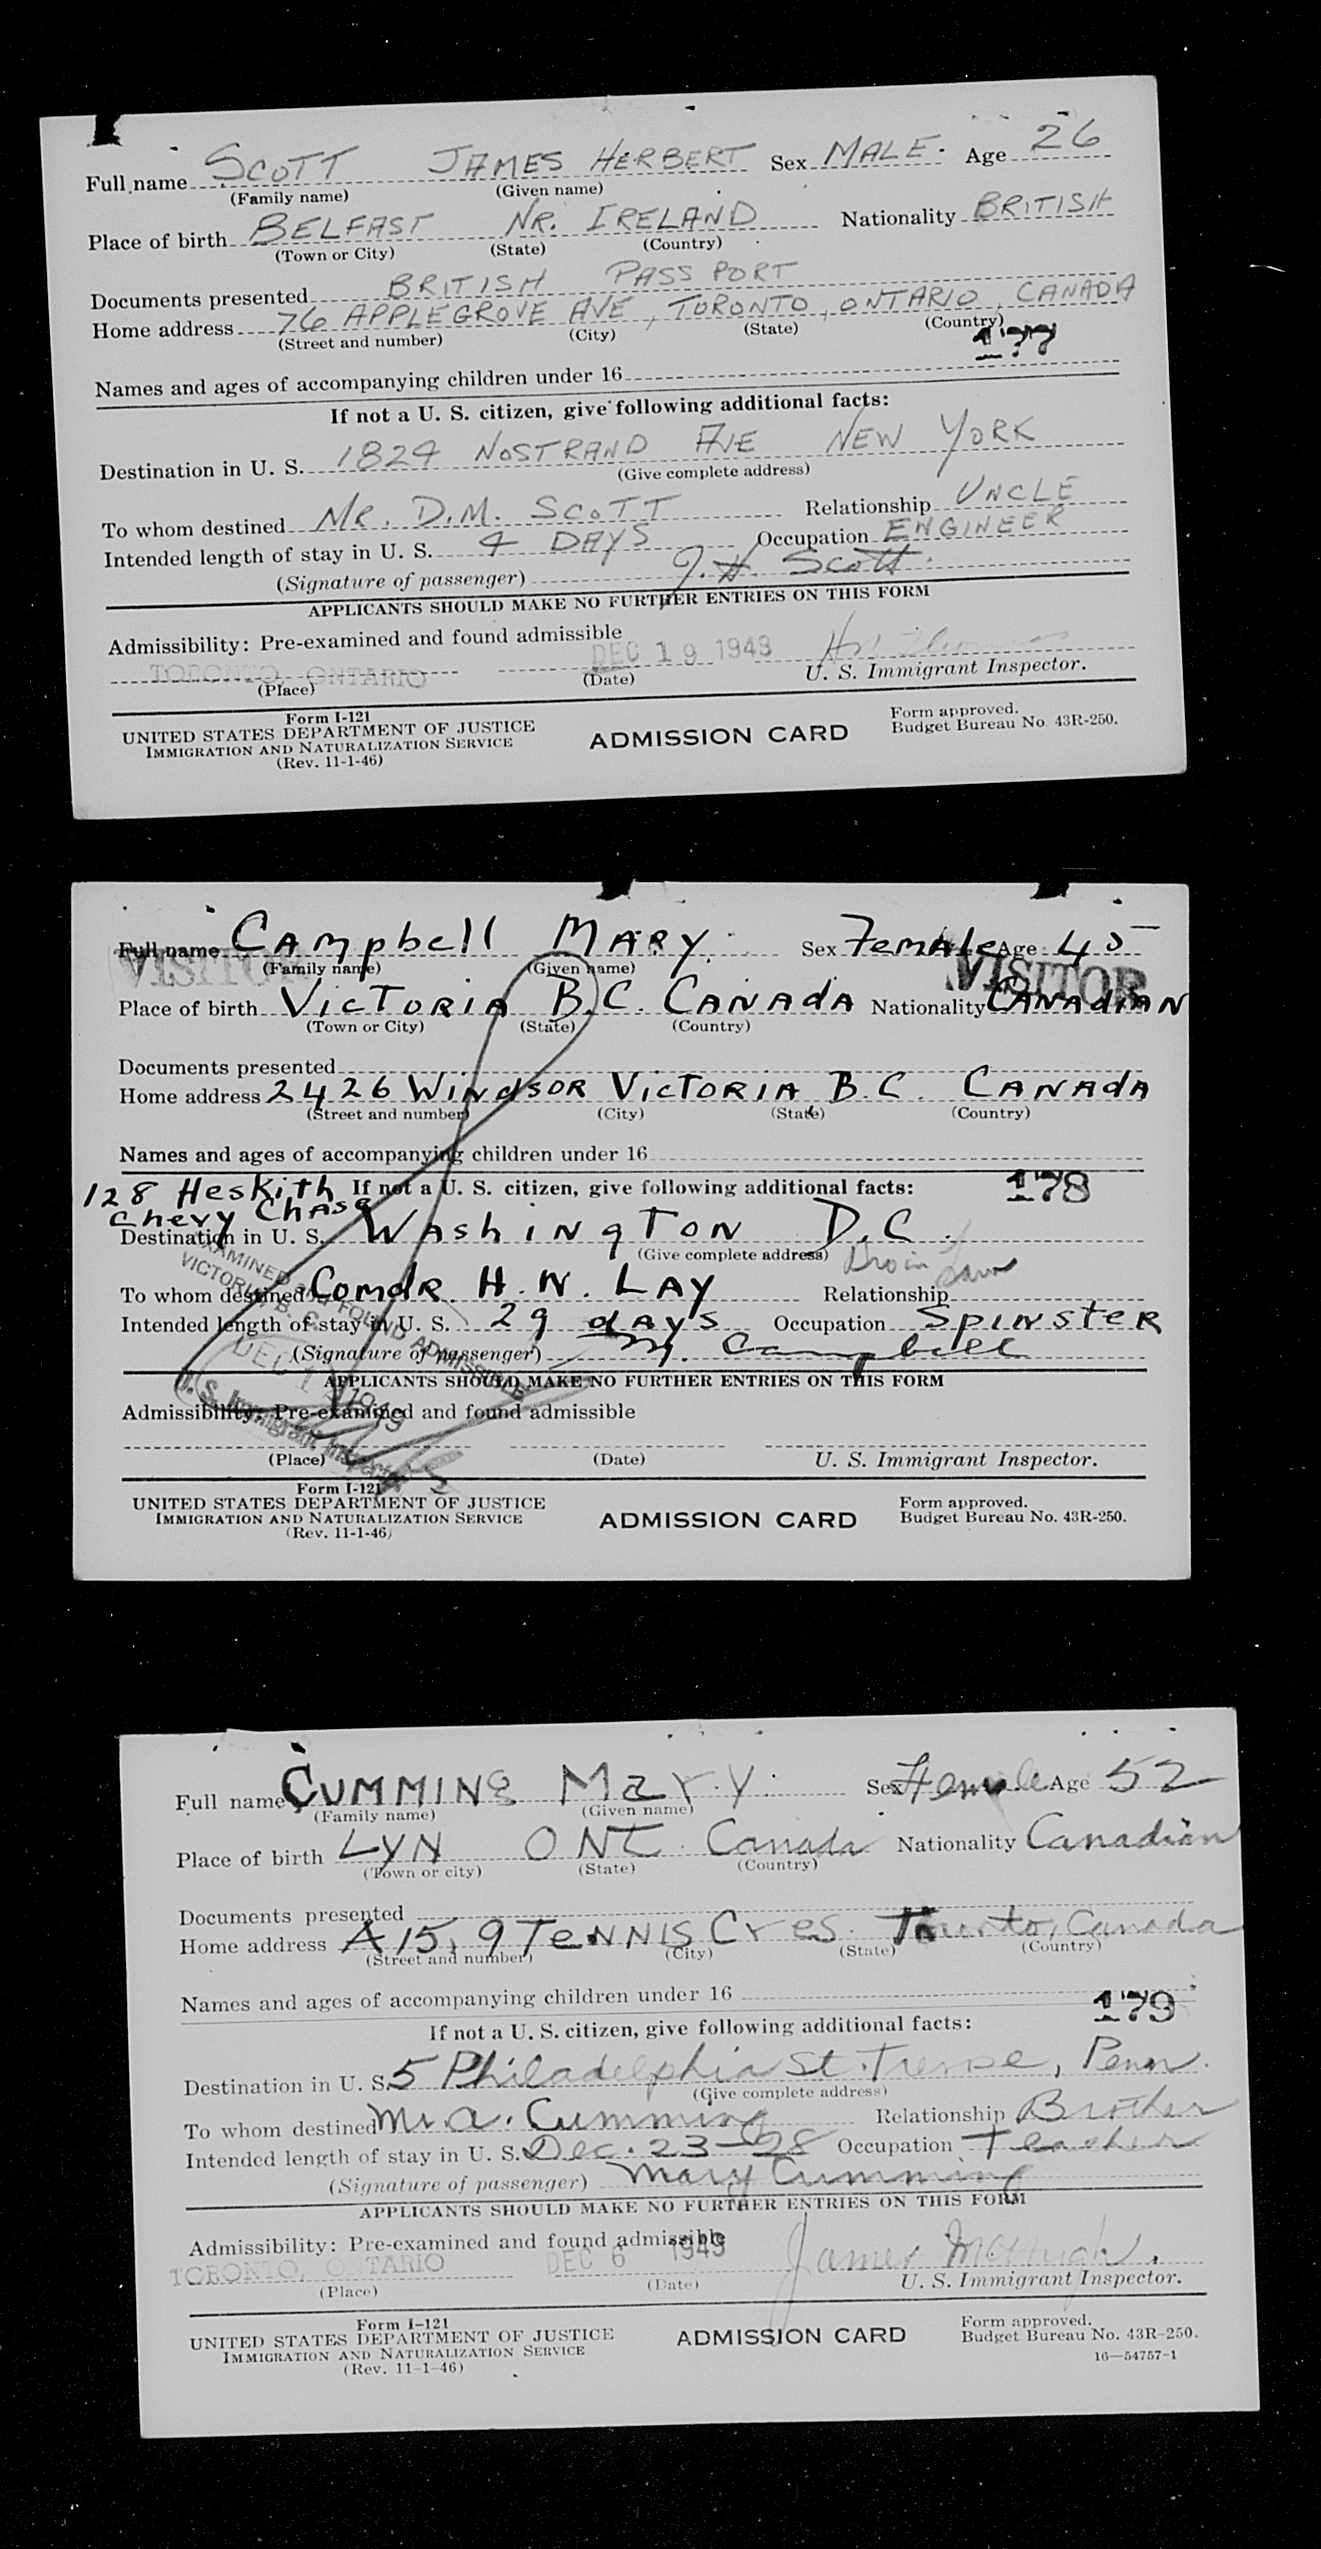 Full name SCOTT JAMES HERBERT Sex MALE. Age 26
(Family name) (Given name)
Place of birth BELFAST NR. IRELAND Nationality BRITISH
(Town or City) (State) (Country)
Documents presented BRITISH PASS PORT
Home address 76 APPLEGROVE AVE, TORONTO, ONTARIO, CANADA
(Street and number) (City) (State) (Country)
177
Names and ages of accompanying children under 16
If not a U. S. citizen, give following additional facts:
Destination in U. S. 1824 NOSTRAND AVE NEW YORK
(Give complete address)
To whom destined MR. D.M. SCOTT Relationship UNCLE
Intended length of stay in U. S. 4 DAYS Occupation ENGINEER
(Signature of passenger) J. H. Scott.
APPLICANTS SHOULD MAKE NO FURTHER ENTRIES ON THIS FORM
Admissibility: Pre-examined and found admissible
TORONTO, ONTARIO DEC 19 1949
(Place) (Date) U. S. Immigrant Inspector.
Form I-121
UNITED STATES DEPARTMENT OF JUSTICE
IMMIGRATION AND NATURALIZATION SERVICE
(Rev. 11-1-46)
ADMISSION CARD
Form approved.
Budget Bureau No. 43R-250.
Full name CAmpbell MARY. Sex Female Age 45
VISITOR VISITOR
(Family name) (Given name)
Place of birth VICTORIA B.C. CANAdA Nationality CANAdIAN
(Town or City) (State) (Country)
Documents presented
Home address 2426 WINdSOR VICTORIA B.C. CANAdA
(Street and number) (City) (State) (Country)
Names and ages of accompanying children under 16
128 Heskith If not a U. S. citizen, give following additional facts: 178
Chevy Chase
Destination in U. S. WAshINgTON D.C.
(Give complete address)
To whom destined Comdr. H. W. LAY Relationship Bro in Law
Intended length of stay in U. S. 29 dAys Occupation SpINsTeR
(Signature of passenger) M. Campbell
APPLICANTS SHOULD MAKE NO FURTHER ENTRIES ON THIS FORM
EXAMINED and FOUND ADMISSIBLE
VICTORIA, B. C.
DEC 1949
U. S. Immigrant Inspector
Admissibility: Pre-examined and found admissible
(Place) (Date) U. S. Immigrant Inspector.
Form I-121
UNITED STATES DEPARTMENT OF JUSTICE
IMMIGRATION AND NATURALIZATION SERVICE
(Rev. 11-1-46)
ADMISSION CARD
Form approved.
Budget Bureau No. 43R-250.
Full name CUMMING Mary. Sex Female Age 52
(Family name) (Given name)
Place of birth LYN ONT. Canada Nationality Canadian
(Town or city) (State) (Country)
Documents presented
Home address A15, 9 TeNNIS Cres. Toronto, Canada
(Street and number) (City) (State) (Country)
Names and ages of accompanying children under 16
179
If not a U. S. citizen, give following additional facts:
Destination in U. S. 5 Philadelphia St. Penn.
(Give complete address)
To whom destined Mr. A. Cumming Relationship Brother
Intended length of stay in U. S. Dec. 23-28 Occupation Teacher
(Signature of passenger) Mary Cumming
APPLICANTS SHOULD MAKE NO FURTHER ENTRIES ON THIS FORM
Admissibility: Pre-examined and found admissible
TORONTO, ONTARIO DEC 6 1949 James McHugh.
(Place) (Date) U. S. Immigrant Inspector.
Form I-121
UNITED STATES DEPARTMENT OF JUSTICE
IMMIGRATION AND NATURALIZATION SERVICE
(Rev. 11-1-46)
ADMISSION CARD
Form approved.
Budget Bureau No. 43R-250.
16—54757-1